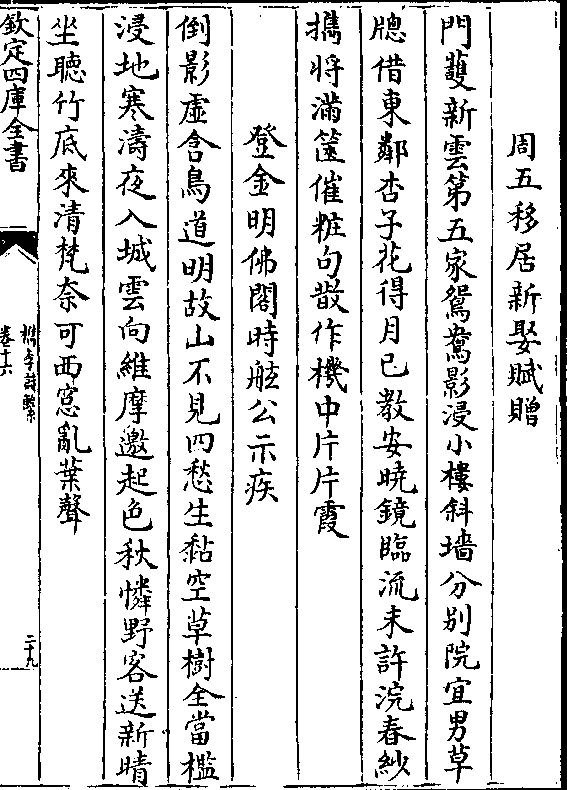 周五移居新娶賦贈
門䕶新雲第五家鴛鴦影浸小樓斜墻分别院宜男草
牕借東鄰杏子花得月已教安曉鏡臨流未許浣春紗
攜將滿篋催粧句散作機中片片霞
登金明佛閣時舷公示疾
倒影虛含鳥道明故山不見四愁生黏空草樹全當檻
浸地寒濤夜入城雲向維摩邀起色秋憐野客送新晴
坐聽竹底來清梵奈可西窓亂葉聲
欽定四庫全書
卷十六
二十九